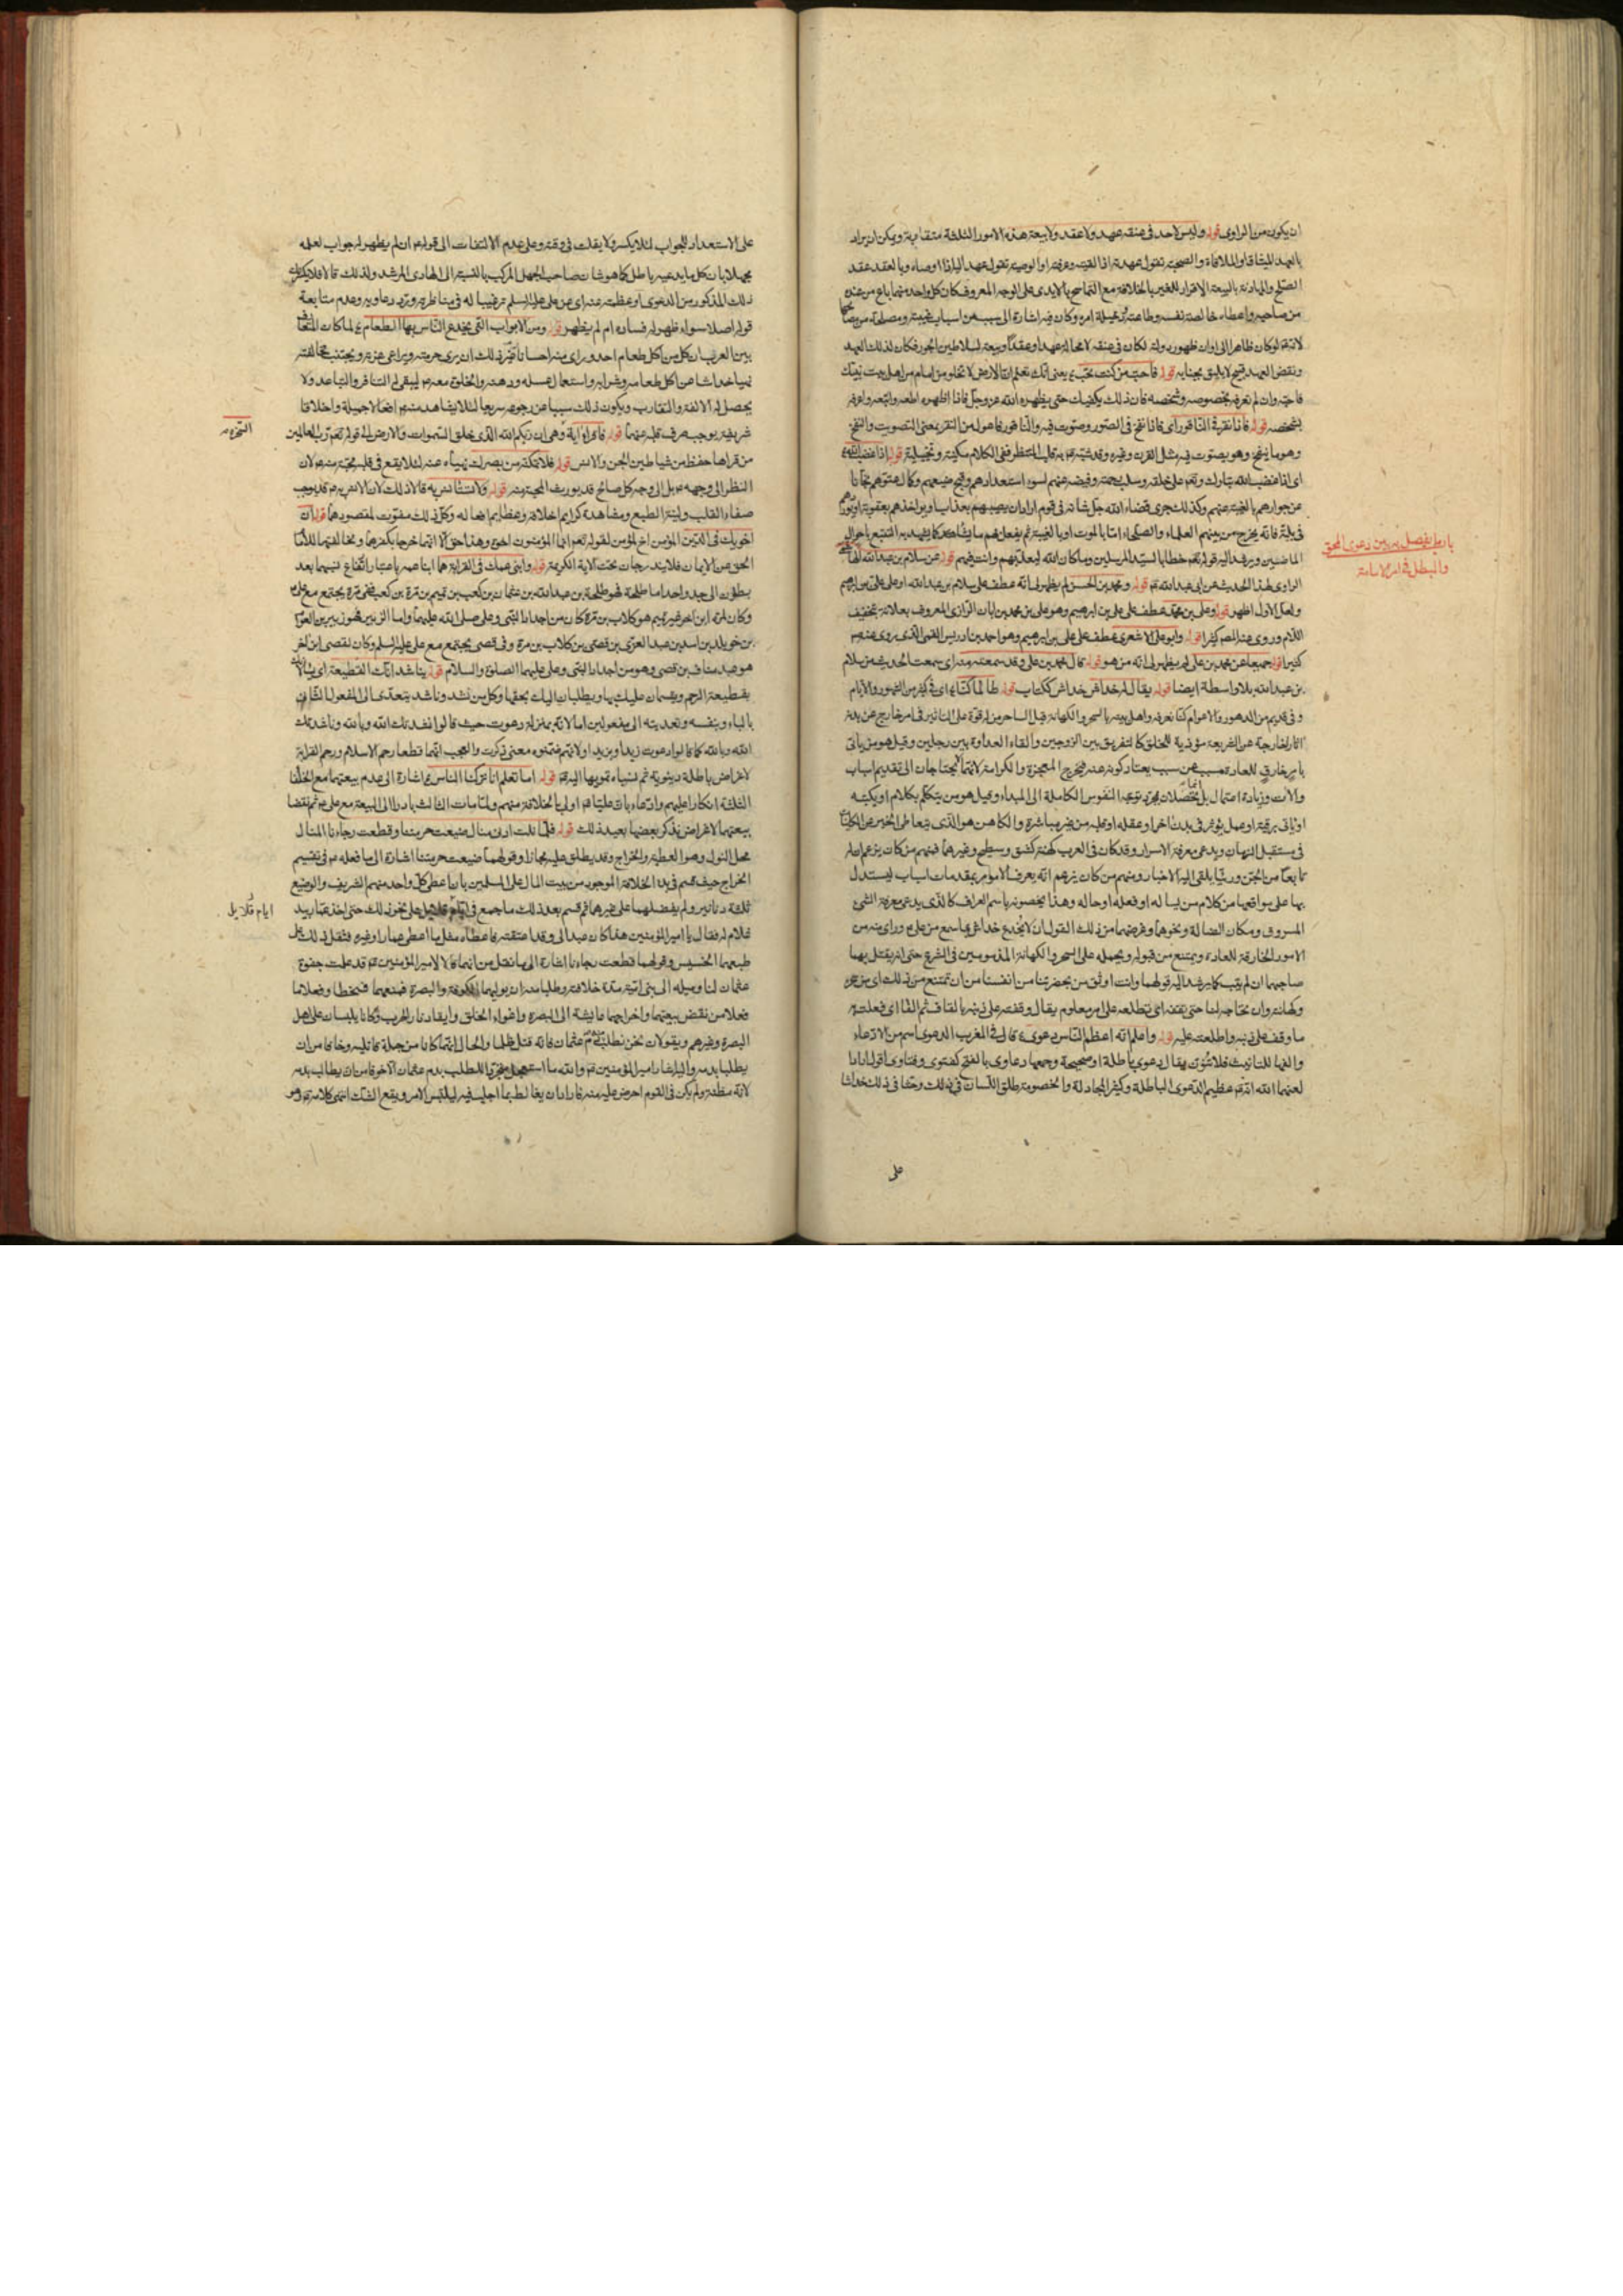 ان يكون من الراوى قوله وليس لاحد فى عنقه عهد ولا عقد ولا بيعة هذه الامور الثلثة متقاربة ويمكن ان يراد
بالعهد الميثاق او الملاقاة والصحبة تقول عهدته اذا لقيته وعرفته او الوصية تقول عهد اليه اذا اوصاه وبالعقد عقد
الصلح والمهادنة وبالبيعة الاقرار للغير بالخلافة مع التماسح بالايدى على الوجه المعروف كان كل واحد منهما باع من عنده
من صاحبه واعطاه خالصة نفسه وطاعته ودخيلة امره وكان فيه اشارة الى سبب من اسباب غيبته ومصلحة من مصالحها
لانه لو كان ظاهرا الى اوان ظهور دولته لكان فى عنقه لا محالة عهدا وعقدا وبيعة لسلاطين الجور فكان لذلك العهد
ونقض العهد قبيح لا يليق بجنابه قوله فاحب من كنت تحب يعنى انك تعلم ان الارض لا تخلو من امام من اهل بيت نبيك
فاحبه وان لم تعرفه بخصوصه وشخصه فان ذلك يكفيك حتى يظهره الله عز وجل فاذا اظهره اطعه واتبعه واعرفه
بشخصه قوله فاذا نقر فى الناقور اى فاذا نفخ فى الصور وصوت فيه والناقور فاعول من النقر بمعنى التصويت والنفخ
وهو ما ينفخ وهو يصوت فيه مثل القرن وغيره وقد شبه به قلب المنتظر ففى الكلام مكنية وتخييلية قوله اذا غضب الله
اى اذا غضب الله تبارك وتعالى على خلقه وسلب رحمته وفيضه عنهم لسوء استعدادهم وقبح صنيعهم وكمال عتوهم نحانا
عن جوارهم بالغيبة عنهم وكذلك جرى قضاء الله جل شانه فى قوم اراد ان يصيبهم بعذاب او يؤاخذهم بعقوبة او يورد
فى بلية فانه يخرج من بينهم العلماء والصلحاء اما بالموت او بالغيبة ثم يفعل بهم ما يشاء كما يشهد به التتبع باحوال
الماضيين ويرشد اليه قوله تعالى خطابا لسيد المرسلين وما كان الله ليعذبهم وانت فيهم قوله عن سلام بن عبد الله الهاشمى
الراوى لهذا الحديث عن ابى عبد الله قوله ومحمد بن الحسن لم يظهر لى انه عطف على سلام بن عبد الله او على على بن ابراهيم
ولعل الاول اظهر قوله وعلى بن محمد عطف على على بن ابراهيم وهو على بن محمد بن ابان الرازى المعروف بعلان بتخفيف
اللام وروى عنه المصنف كثيرا قوله وابو على الاشعرى عطف على على بن ابراهيم وهو احمد بن ادريس القمى الذى روى عنه المصنف
كثيرا قوله جميعا عن محمد بن على لم يظهر لى انه من هو قوله قال محمد بن على وقد سمعته منه اى سمعت الحديث من سلام
بن عبد الله بلا واسطة ايضا قوله يقال له خداش خداش ككتاب قوله طال ما كنا اى فى كثير من الشهور والايام
وفى قديم من الدهور والاعوام كنا نعرفه واهل بيته بالسحر والكهانة قيل الساحر من له قوة على التاثير فى امر خارج عن بدنه
اثارا خارجة عن الشريعة مؤذية للخلق كالتفريق بين الزوجين والقاء العداوة بين رجلين وقيل هو من ياتى
بامر خارق للعادة مسبب عن سبب يعتاد كونه عنه فيخرج المعجزة والكرامة لانهما لا يحتاجان الى تقديم اسباب
والات وزيادة اعتمال بل انما تحصلان بمجرد توجه النفوس الكاملة الى المبداء وقيل هو من يتكلم بكلام او يكتبه
او ياتى برقية او عمل يؤثر فى بدن اخر او عقله او قلبه من غير مباشرة والكاهن هو الذى يتعاطى الخبر عن الكاينات
فى مستقبل الزمان ويدعى معرفة الاسرار وقد كان فى العرب كهنة كشق وسطيح وغيرهما فمنهم من كان يزعم ان له
تابعا من الجن ورئيا يلقى اليه الاخبار ومنهم من كان يزعم انه يعرف الامور بمقدمات اسباب ليستدل
بها على مواقعها من كلام من يساله او فعله او حاله وهذا يخصونه باسم العراف كالذى يدعى معرفة الشئ
المسروق ومكان الضالة ونحوهما وغرضهما من ذلك القول ان لا يخدع خداش بما سمع من على وراى منه من
الامور الخارقة للعادة ويمتنع من قبوله ويحمله على السحر والكهانة المذمومين فى الشرع حتى انه يقتل بهما
صاحبهما ان لم يتب كما يرشد اليه قولهما وانت اوثق من بحضرتنا من انفسنا من ان تمتنع من ذلك اى من سحره
وكهانته وان تحتاجه لنا حتى تقفه اى تطلعه على امر معلوم يقال وقفته على ذنبه بالقاف ثم الفاء اى فعلت به
ما وقف على ذنبه واطلعته عليه قوله واعلم انه اعظم الناس دعوى قال فى المغرب الدعوى اسم من الادعاء
والفها للتانيث فلا تنون يقال دعوى باطلة او صحيحة وجمعها دعاوى بالفتح كفتوى وفتاوى اقول ارادا
لعنهما الله انه عظيم الدعوى الباطلة وكثير المجادلة والخصومة طلق اللسان فى ذلك وحثا فى ذلك خداشا
على
باب ما يفصل به بين دعوى المحق
والمبطل فى امر الامامة
على الاستعداد للجواب لئلا يكسر ولا يفلت فى وقته وعلى عدم الالتفات الى قوله ان لم يظهر له جواب لعلمه
مجملا بان كل ما يدعيه باطل كما هو شان صاحب الجهل المركب بالنسبة الى الهادى المرشد ولذلك قالا فلا يكسرنك
ذلك المذكور من الدعوى او عظمته عنه اى عن على عليه السلم ترغيبا له فى مناظرته وترد دعاويه وعدم متابعة
قوله اصلا سواء ظهر له فساده ام لم يظهر قوله ومن الابواب التى يخدع الناس بها الطعام لما كان المتعارف
بين العرب ان كل من اكل طعام احد وراى منه احسانا تاثر بذلك ان يرى حرمته ويراعى عزته ويجتنب مخالفته
نهيا خداشا عن اكل طعامه وشرابه واستعمال عسله ودهنه والخلوة معه ليبقى له التنافر والتباعد ولا
يحصل له الالفة والتقارب ويكون ذلك سببا عن رجوعه سريعا لئلا يشاهد منه افعالا جميلة واخلاقا
شريفة يوجب صرف قلبه عنهما قوله فاقراء اية وهى ان ربكم الله الذى خلق السموات والارض الى قوله تعالى رب العالمين
من قراها حفظ من شياطين الجن والانس قوله فلا تكثر من بصرك نهياه عنه لئلا يقع فى قلبه محبته منه لان
النظر الى وجهه بل الى وجه كل صالح قد يورث المحبة منه قوله ولا تستانس به قالا ذلك لان الانس به قد يوجب
صفاء القلب ولينة الطبع ومشاهدة كرايم اخلاقه وعظايم افعاله وكل ذلك مفوت لمقصودهما قوله ان
اخويك فى الدين المؤمن اخ المؤمن لقوله تعالى انما المؤمنون اخوة وهذا حق الا انهما خرجا بكفرهما ومخالفتهما للامام
الحق عن الايمان فلا يندرجان تحت الاية الكريمة قوله وابنى عمك فى القرابة هما ابنا عمه باعتبار اتفاع نسبهما بعد
بطون الى جد واحد اما طلحة فهو طلحة بن عبد الله بن عثمان بن كعب بن تيم بن مرة بن كعب ففى مرة يجتمع مع على
وكان لمرة ابن اخر غير تيم هو كلاب بن مرة كان من اجداد النبى وعلى صلى الله عليهما واما الزبير فهو زبير بن العوام
بن خويلد بن اسد بن عبد العزى بن قصى بن كلاب بن مرة وفى قصى يجتمع مع على عليه السلم وكان لقصى ابن اخر
هو عبد مناف بن قصى وهو من اجداد النبى وعلى عليهما الصلوة والسلام قوله يناشدانك القطيعة اى يسالانك
بقطيعة الرحم ويقسمان عليك بها ويطلبان اليك بحقها وكل من نشد وناشد يتعدى الى المفعول الثانى
بالباء وبنفسه وتعديته الى مفعولين اما لانه بمنزلة دعوت حيث قالوا نشدتك الله وبالله وناشدتك
الله وبالله كما قالوا دعوت زيدا وبزيد او لانهم ضمنوه معنى ذكرت والعجب انهما قطعا رحم الاسلام ورحم القرابة
لاغراض باطلة دنيوية ثم نسباه تمويها اليه قوله اما تعلم انا تركنا الناس اشارة الى عدم بيعتهما مع الخلفاء
الثلثة انكارا عليهم وادعاء بان عليا اولى بالخلافة منهم ولما مات الثالث بادرا الى البيعة مع على ثم نقضا
بيعتهما لاغراض نذكر بعضها بعيد ذلك قوله فلما نلت ادنى منال ضيعت حرمتنا وقطعت رجاءنا المنال
محل النول وهو العطية والخراج وقد يطلق عليه مجازا وقولهما ضيعت حرمتنا اشارة الى ما فعله فى تقسيم
الخراج حيث قسم فى بدا الخلافة الموجود من بيت المال على المسلمين بان اعطى كل واحد منهم الشريف والوضيع
ثلثة دنانير ولم يفضلهما على غيرهما ثم قسم بعد ذلك ما جمع فى ايام قلايل على نحو ذلك حتى اخذ عمار بيد
غلام له فقال يا امير المؤمنين هذا كان عبدا لى وقد اعتقته فاعطاه مثل ما اعطى عمارا وغيره فثقل ذلك على
طبعهما الخسيس وقولهما قطعت رجاءنا اشارة الى ما نقل من انهما قالا لامير المؤمنين قد علمت جفوة
عثمان لنا وميله الى بنى امية مدة خلافته وطلبا منه ان يوليهما الكوفة والبصرة فمنعهما فسخطا وفعلا ما
فعلا من نقض بيعتهما واخراجهما عايشة الى البصرة واغواء الخلق وايقاد نار الحرب وكانا يلبسان على اهل
البصرة وغيرهم ويقولان نحن نطلب دم عثمان فانه قتل ظلما والحال انهما كانا من جملة قاتليه وخافا من ان
يطلبا بدمه واليه اشار امير المؤمنين والله ما استعجل متجردا للطلب بدم عثمان الا خوفا من ان يطالب بدمه
لانه مظنته ولم يكن فى القوم احرص عليه منه فاراد ان يغالط بما اجلب فيه ليلتبس الامر ويقع الشك انتهى كلامه وهو
ايام قلايل